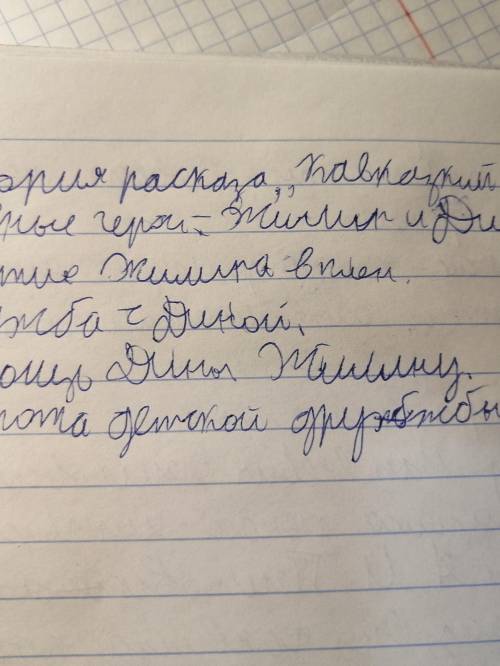 ория расказа „Кавказкий
ные герои - Жилин и Ди
тие Жилина в плен.
жба с Диной.
ощь Дины Жилину.
ота детской дружбы